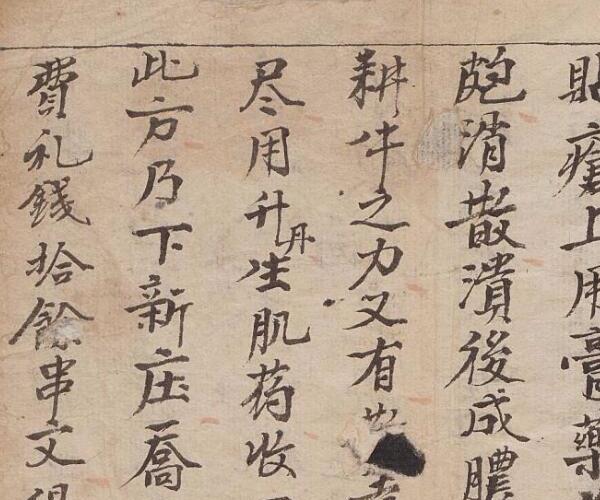 貼瘡上用膏藥
皰消散潰後成膿
耕牛之力又有
尽用升丹生肌药收
此方乃下新庄喬
費礼錢拾餘串文